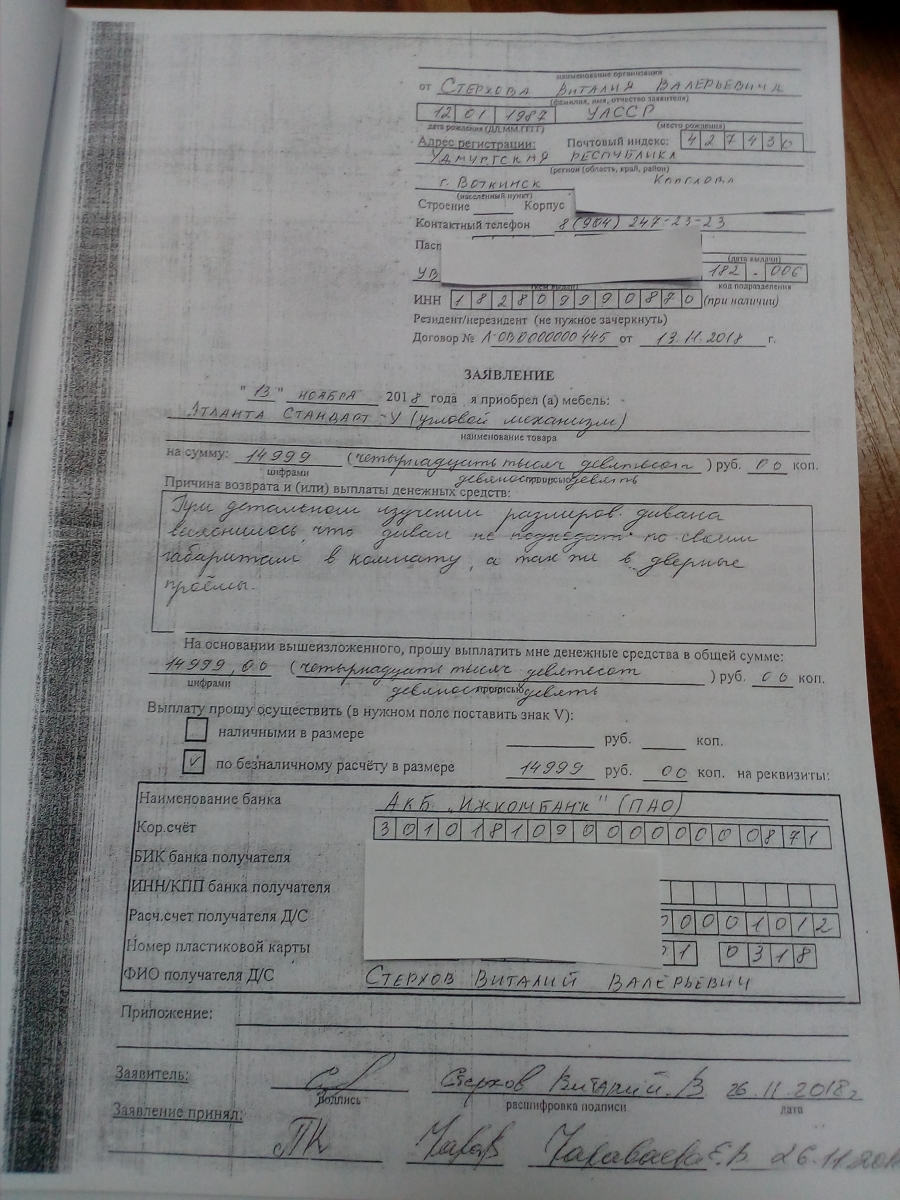 наименование организации
от Стерхова Виталия Валерьевича
(фамилия, имя, отчество заявителя)
12 01 1987 УАССР
дата рождения (ДД.ММ.ГГГГ) (место рождения)
Адрес регистрации: Почтовый индекс: 427430
Удмуртская Республика
(регион (область, край, район)
г. Воткинск
(населённый пункт)
Строение Корпус
Контактный телефон 8(904) 247-23-23
Пасп
(дата выдачи)
УВ 182 - 006
код подразделения
ИНН 182809990870 (при наличии)
Резидент/нерезидент (не нужное зачеркнуть)
Договор № Л-ОВ0000000445 от 13.11.2018 г.
ЗАЯВЛЕНИЕ
"13" ноября 2018 года я приобрел (а) мебель:
Атланта Стандарт-У (угловой механизм)
наименование товара
на сумму: 14999 (четырнадцать тысяч девятьсот ) руб. 00 коп.
цифрами прописью девяносто девять
Причина возврата и (или) выплаты денежных средств:
При детальном изучении размеров дивана
выяснилось, что диван не подходит по своим
габаритам в комнату, а так же в дверные
проёмы.
На основании вышеизложенного, прошу выплатить мне денежные средства в общей сумме:
14999,00 (четырнадцать тысяч девятьсот ) руб. 00 коп.
цифрами прописью девяносто девять
Выплату прошу осуществить (в нужном поле поставить знак V):
наличными в размере руб. коп.
V по безналичному расчёту в размере 14999 руб. 00 коп. на реквизиты:
Наименование банка АКБ "ИЖКОМБАНК" (ПАО)
Кор.счёт 30101810900000000871
БИК банка получателя
ИНН/КПП банка получателя
Расч.счет получателя Д/С 0001012
Номер пластиковой карты 1 0318
ФИО получателя Д/С Стерхов Виталий Валерьевич
Приложение:
Заявитель: Стерхов Виталий. В 26.11.2018г
подпись расшифровка подписи дата
Заявление принял: ПК Чарав Чараваева Е.В. 26.11.201